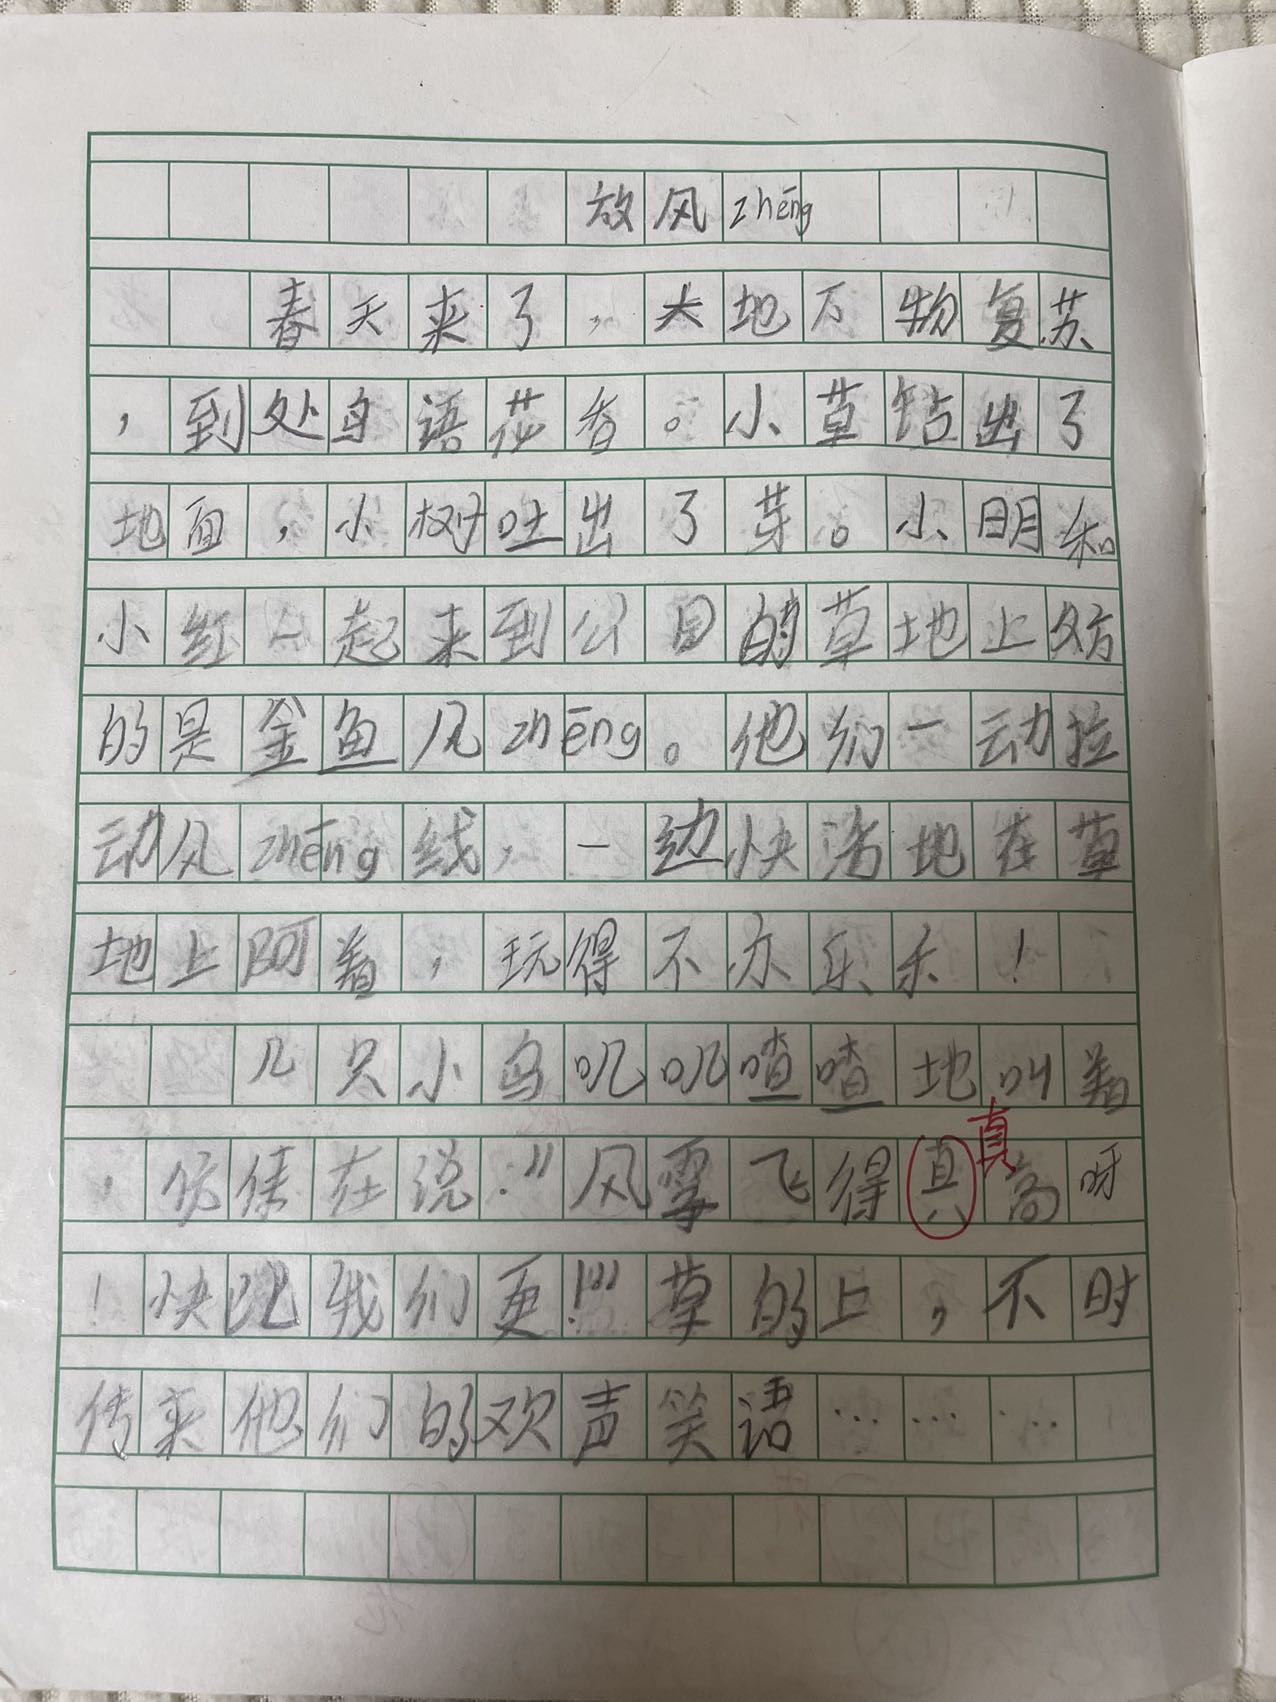 放风zhēng
春天来了，大地万物复苏
，到处鸟语花香。小草钻出了
地面，小树吐出了芽。小明和
小红一起来到公日的草地上放
的是金鱼风zhēng。他们一动拉
动风zhēng线，一边快活地在草
地上阿着，玩得不亦乐乐！
几只小鸟叽叽喳喳地叫着
真
，仿佛在说：“风筝飞得真高呀
！快比我们更！”草的上，不时
传来他们的欢声笑语………